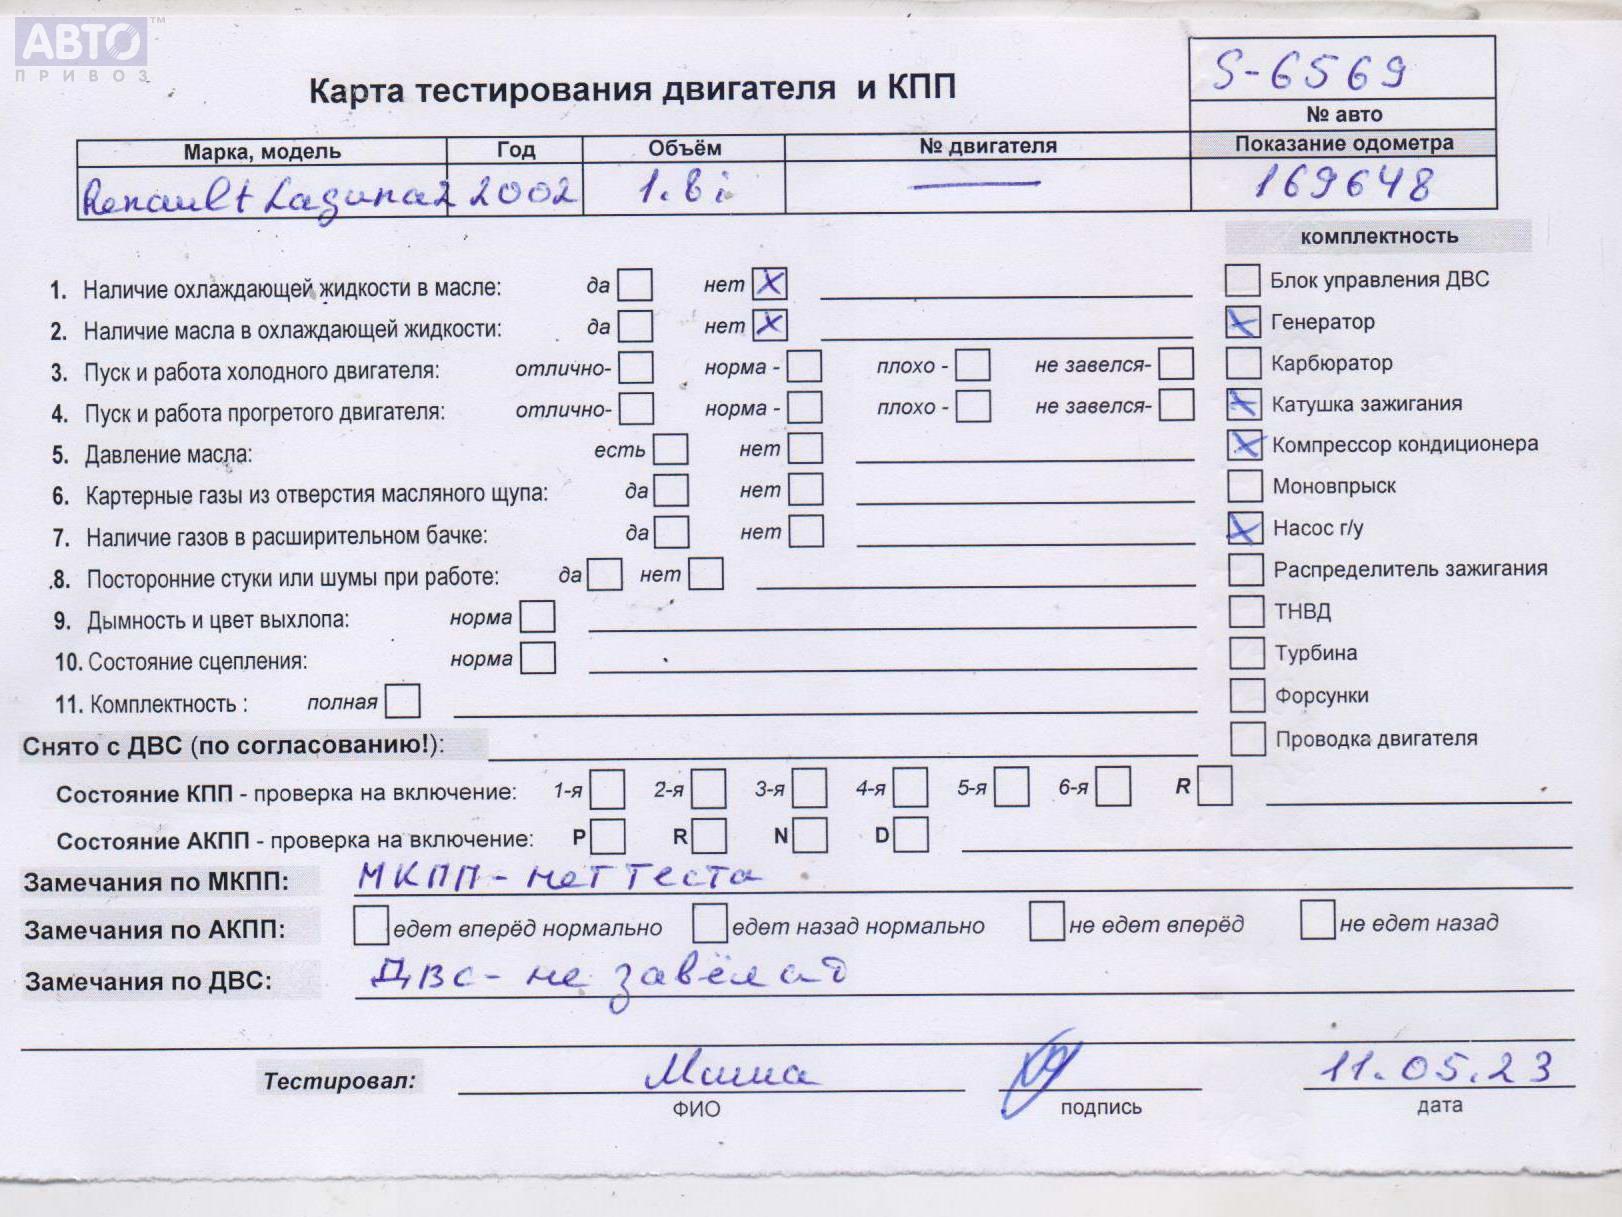 АВТО™
ПРИВОЗ
Карта тестирования двигателя и КПП
S-6569
№ авто
Марка, модель Год Объём № двигателя Показание одометра
Renault Laguna 2 2002 1.8i — 169648
комплектность
1. Наличие охлаждающей жидкости в масле: да нет X
2. Наличие масла в охлаждающей жидкости: да нет X
3. Пуск и работа холодного двигателя: отлично- норма - плохо - не завелся-
4. Пуск и работа прогретого двигателя: отлично- норма - плохо - не завелся-
5. Давление масла: есть нет
6. Картерные газы из отверстия масляного щупа: да нет
7. Наличие газов в расширительном бачке: да нет
8. Посторонние стуки или шумы при работе: да нет
9. Дымность и цвет выхлопа: норма
10. Состояние сцепления: норма
11. Комплектность : полная
Блок управления ДВС
X Генератор
Карбюратор
X Катушка зажигания
X Компрессор кондиционера
Моновпрыск
X Насос г/у
Распределитель зажигания
ТНВД
Турбина
Форсунки
Проводка двигателя
Снято с ДВС (по согласованию!):
Состояние КПП - проверка на включение: 1-я 2-я 3-я 4-я 5-я 6-я R
Состояние АКПП - проверка на включение: P R N D
Замечания по МКПП: МКПП - нет теста
Замечания по АКПП: едет вперёд нормально едет назад нормально не едет вперёд не едет назад
Замечания по ДВС: ДВС - не завёлся
Тестировал: Миша 11.05.23
ФИО подпись дата